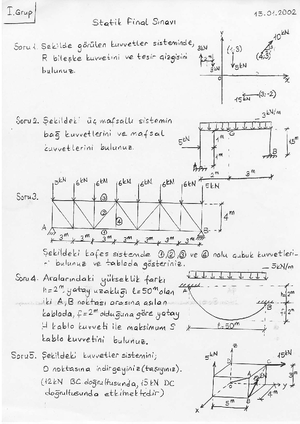 I. Grup
15.01.2002
Statik Final Sınavı
Soru 1. Şekilde görülen kuvvetler sisteminde,
R bileşke kuvvetini ve tesir çizgisini
bulunuz.
Soru 2. Şekildeki üç mafsallı sistemin
bağ kuvvetlerini ve mafsal
kuvvetlerini bulunuz.
3kN/m
Soru 3.
3kN 6kN 6kN 6kN 6kN 6kN
4m
Şekildeki kafes sistemde ①,②,③ ve ④ nolu çubuk kuvvetleri-
ni bulunuz ve tabloda gösteriniz.
3kN/m
Soru 4. Aralarındaki yükseklik farkı
h=2m, yatay uzaklığı l=50m olan
iki A,B noktası arasına asılan
kabloda, f=2m olduğuna göre yatay
H kablo kuvveti ile maksimum S
kablo kuvvetini bulunuz.
l=50m
Soru 5. Şekildeki kuvvetler sistemini,
O noktasına indirgeyiniz (taşıyınız).
(12kN BC doğrultusunda, 15kN DC
doğrultusunda etkimektedir)
5kN
15kN